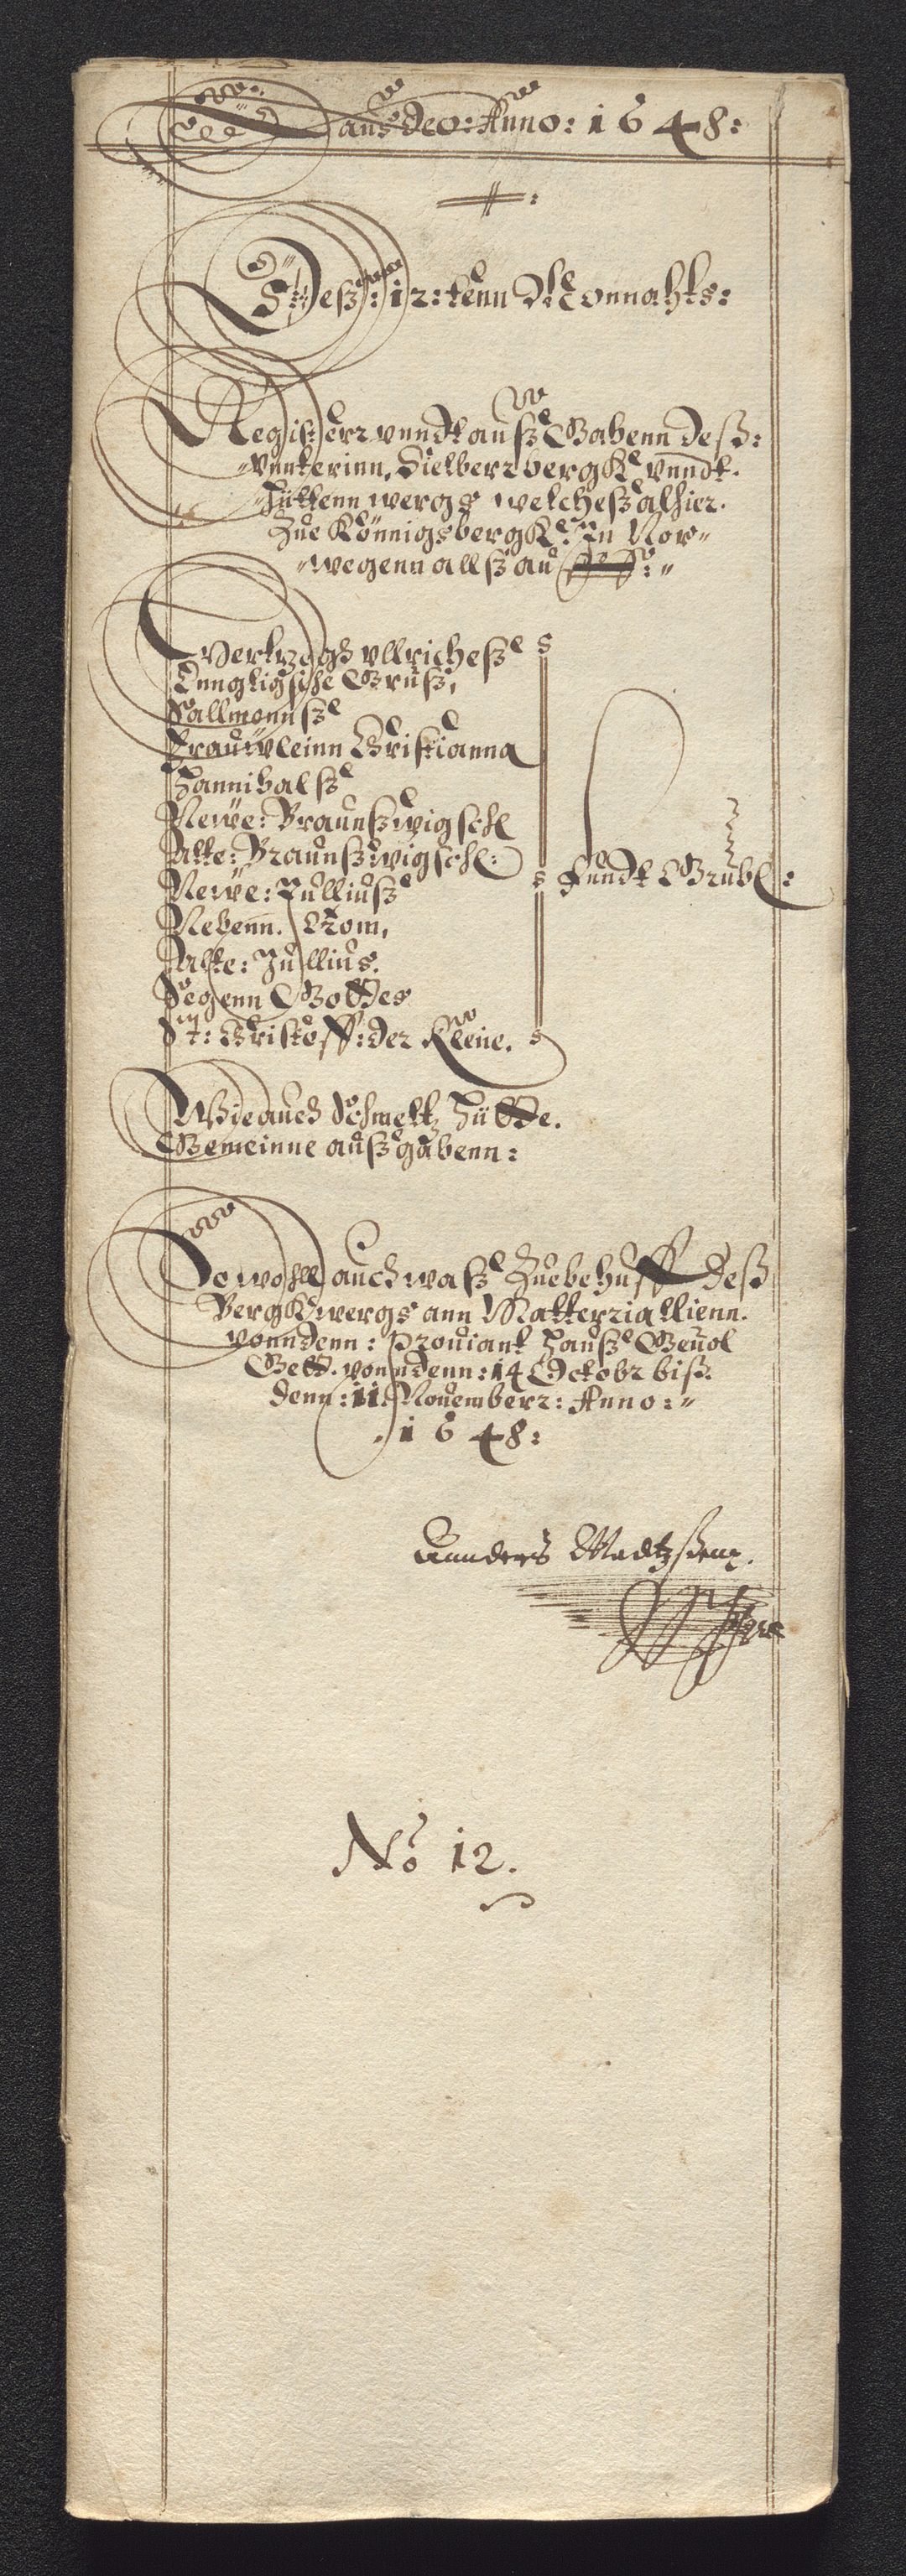 Laus deo: Anno: 1648:
Deß: 12: tenn Monnahts:
Registerr vundt auß Gabenn deß:
Vnnterinn, Sielberr bergk vundt.
Hüttenn wergs welcheß alhier.
Zue Könnigsbergk In Nor=
=wegenn allß an
Hertzogh Vllricheß
Lunngligsche Gruß,
Sallmonnß
Frauwleinn Christianna
Hannibalß
Newe: Braunßwigsche
Alte: Braunßwigsche:
Newe: Julliuß
Fundt Grube:
Nebenn. Trom,
Alte: Jullius.
Segenn Gottes
St: Christoff: der Kleine.
Wie auch Schmeltz Hütte.
Gemeinne außgabenn:
So wohll auch waß Zuebehuff deß
Bergkwergs ann Matterriallienn.
vonn denn: Prouiant Hauß
vonn denn: 14 Octobr biß.
denn: 11. Nouemberr: Anno:
1648:
Annders Madtzßenn.
No 12.